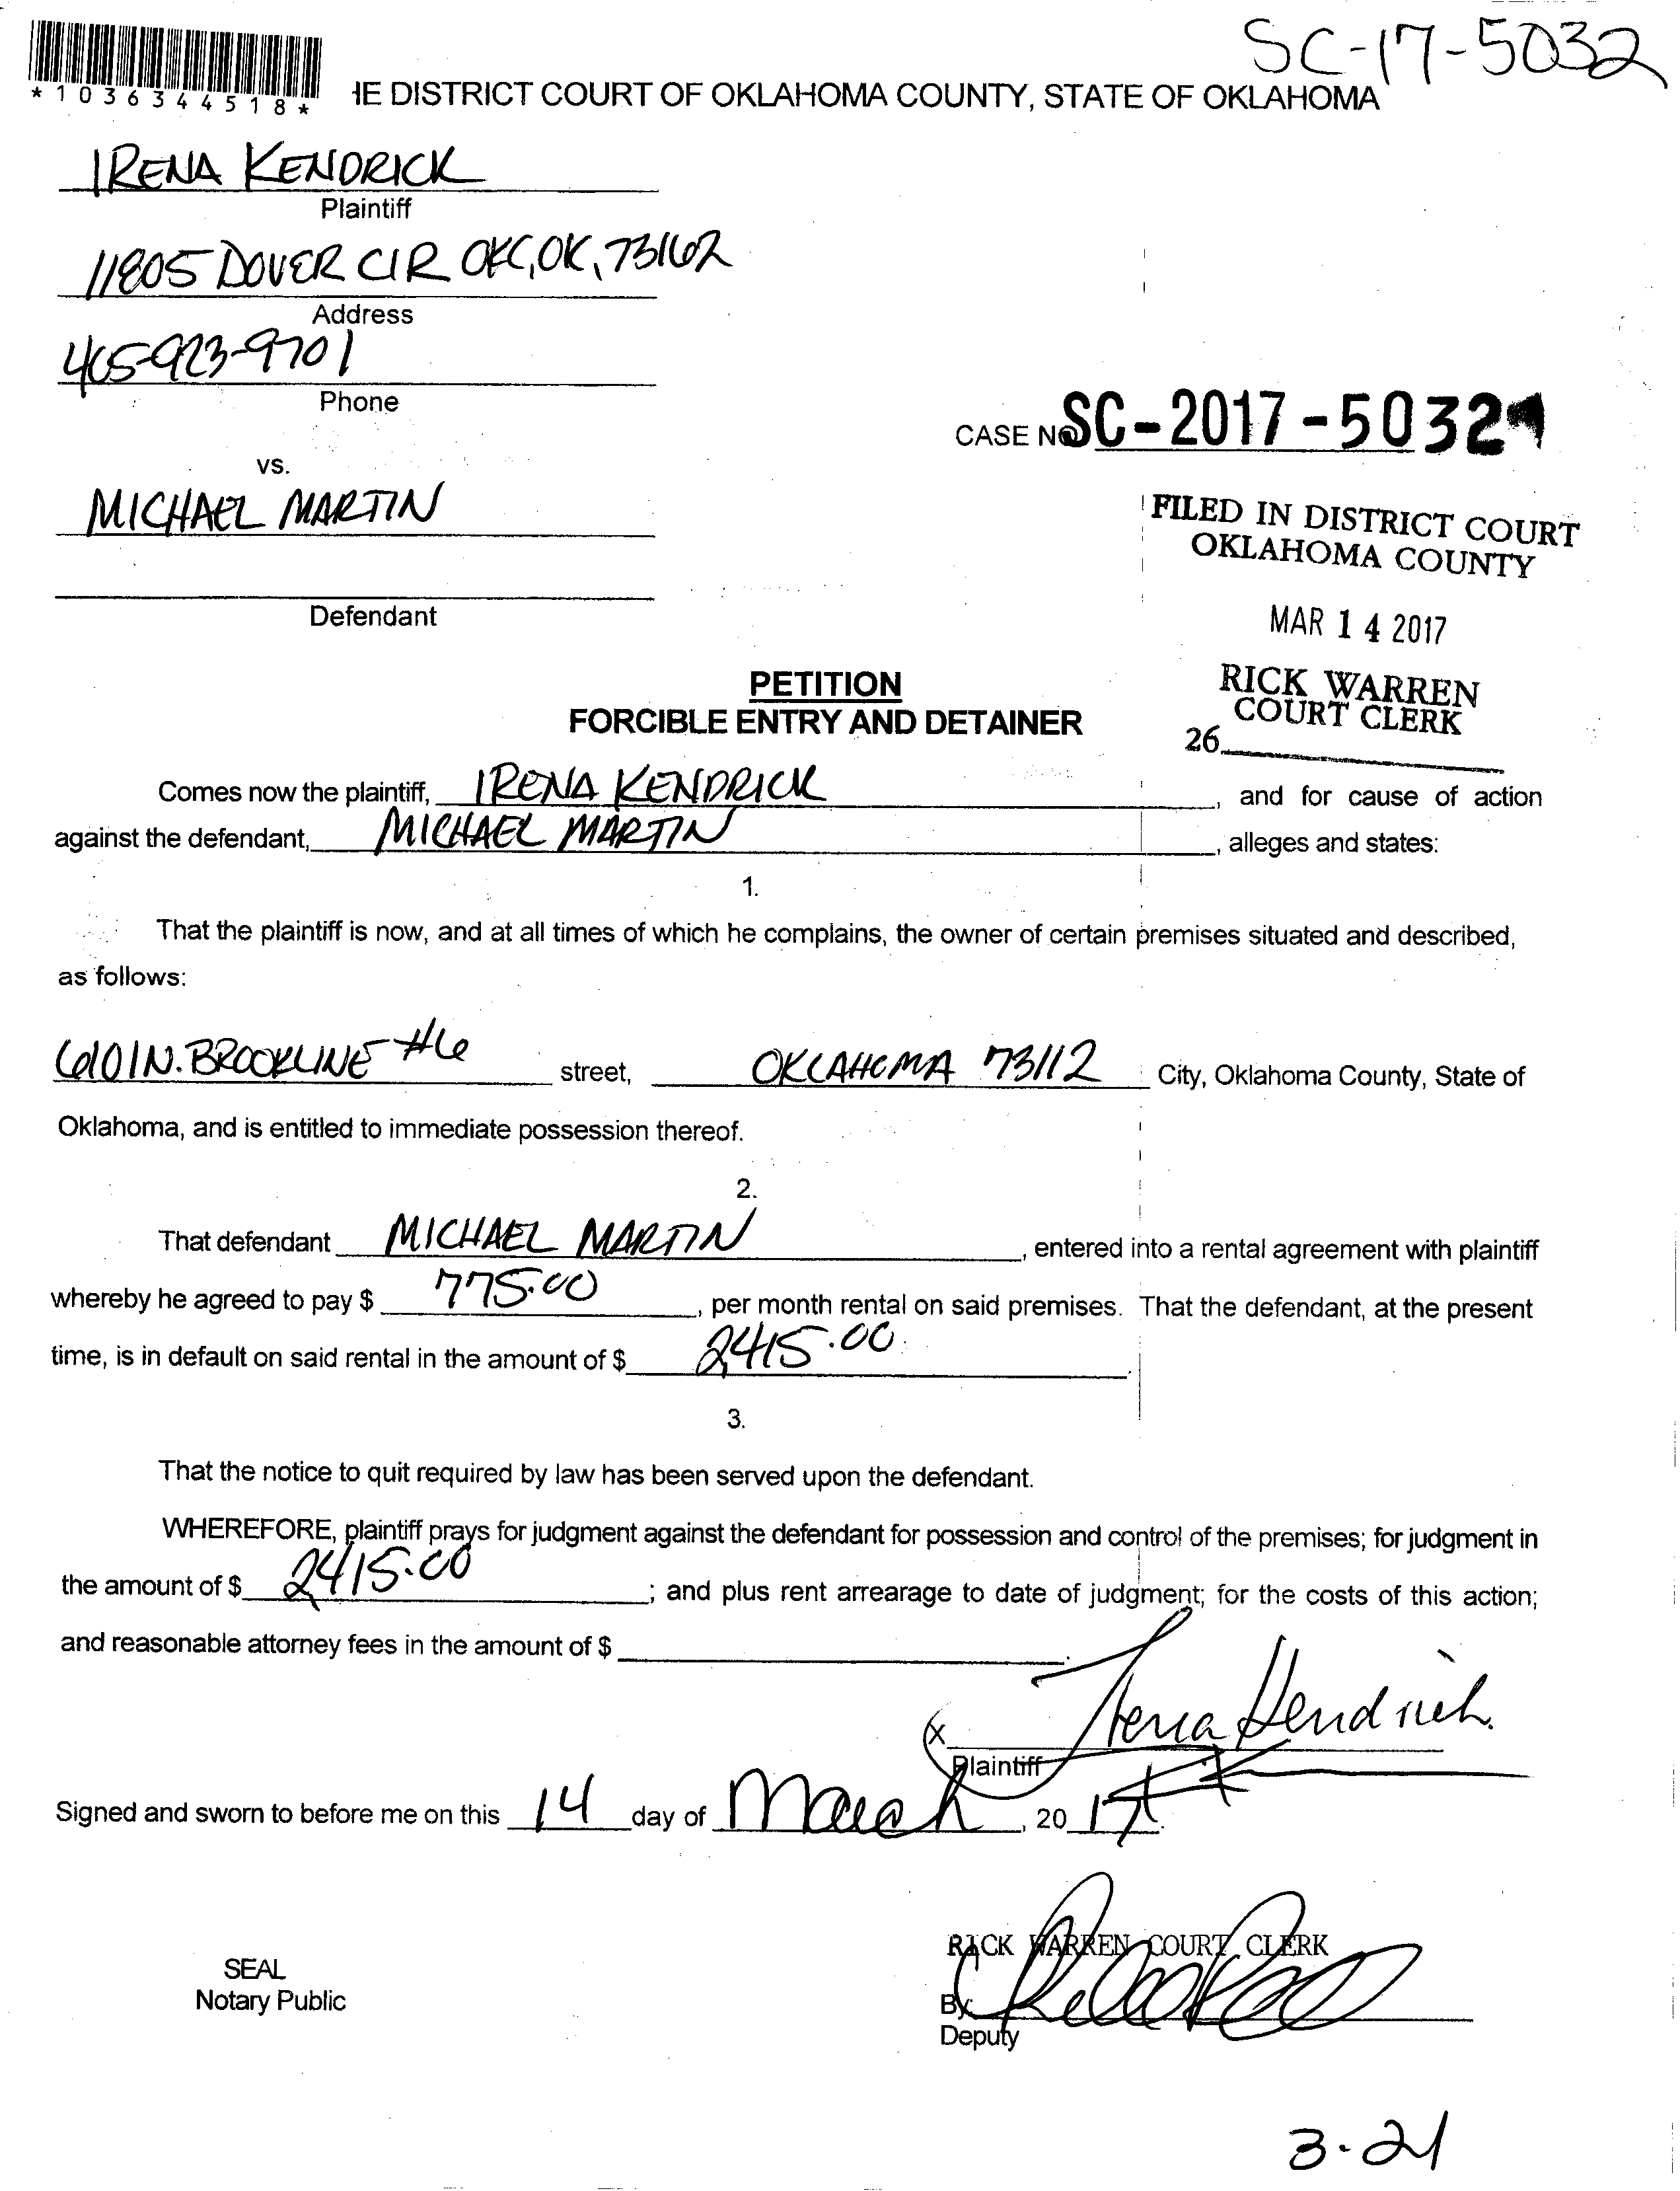 SC-17-5032
*1036344518*
HE DISTRICT COURT OF OKLAHOMA COUNTY, STATE OF OKLAHOMA
IRENA KENDRICK
Plaintiff
11805 DOVER CIR OKC, OK, 73162
Address
405-923-9701
Phone
CASE NO SC-2017-5032
vs.
MICHAEL MARTIN
FILED IN DISTRICT COURT
OKLAHOMA COUNTY
Defendant
MAR 14 2017
RICK WARREN
COURT CLERK
26
PETITION
FORCIBLE ENTRY AND DETAINER
Comes now the plaintiff, IRENA KENDRICK, and for cause of action
against the defendant, MICHAEL MARTIN, alleges and states:
1.
That the plaintiff is now, and at all times of which he complains, the owner of certain premises situated and described,
as follows:
6101 N. BROOKLINE #6 street, OKLAHOMA 73112 City, Oklahoma County, State of
Oklahoma, and is entitled to immediate possession thereof.
2.
That defendant MICHAEL MARTIN, entered into a rental agreement with plaintiff
whereby he agreed to pay $ 775.00, per month rental on said premises. That the defendant, at the present
time, is in default on said rental in the amount of $ 2415.00.
3.
That the notice to quit required by law has been served upon the defendant.
WHEREFORE, plaintiff prays for judgment against the defendant for possession and control of the premises; for judgment in
the amount of $ 2415.00; and plus rent arrearage to date of judgment; for the costs of this action;
and reasonable attorney fees in the amount of $.
X Irena Kendrick
Plaintiff
Signed and sworn to before me on this 14 day of March, 20 17.
RICK WARREN COURT CLERK
SEAL
Notary Public
By:
Deputy
3-21